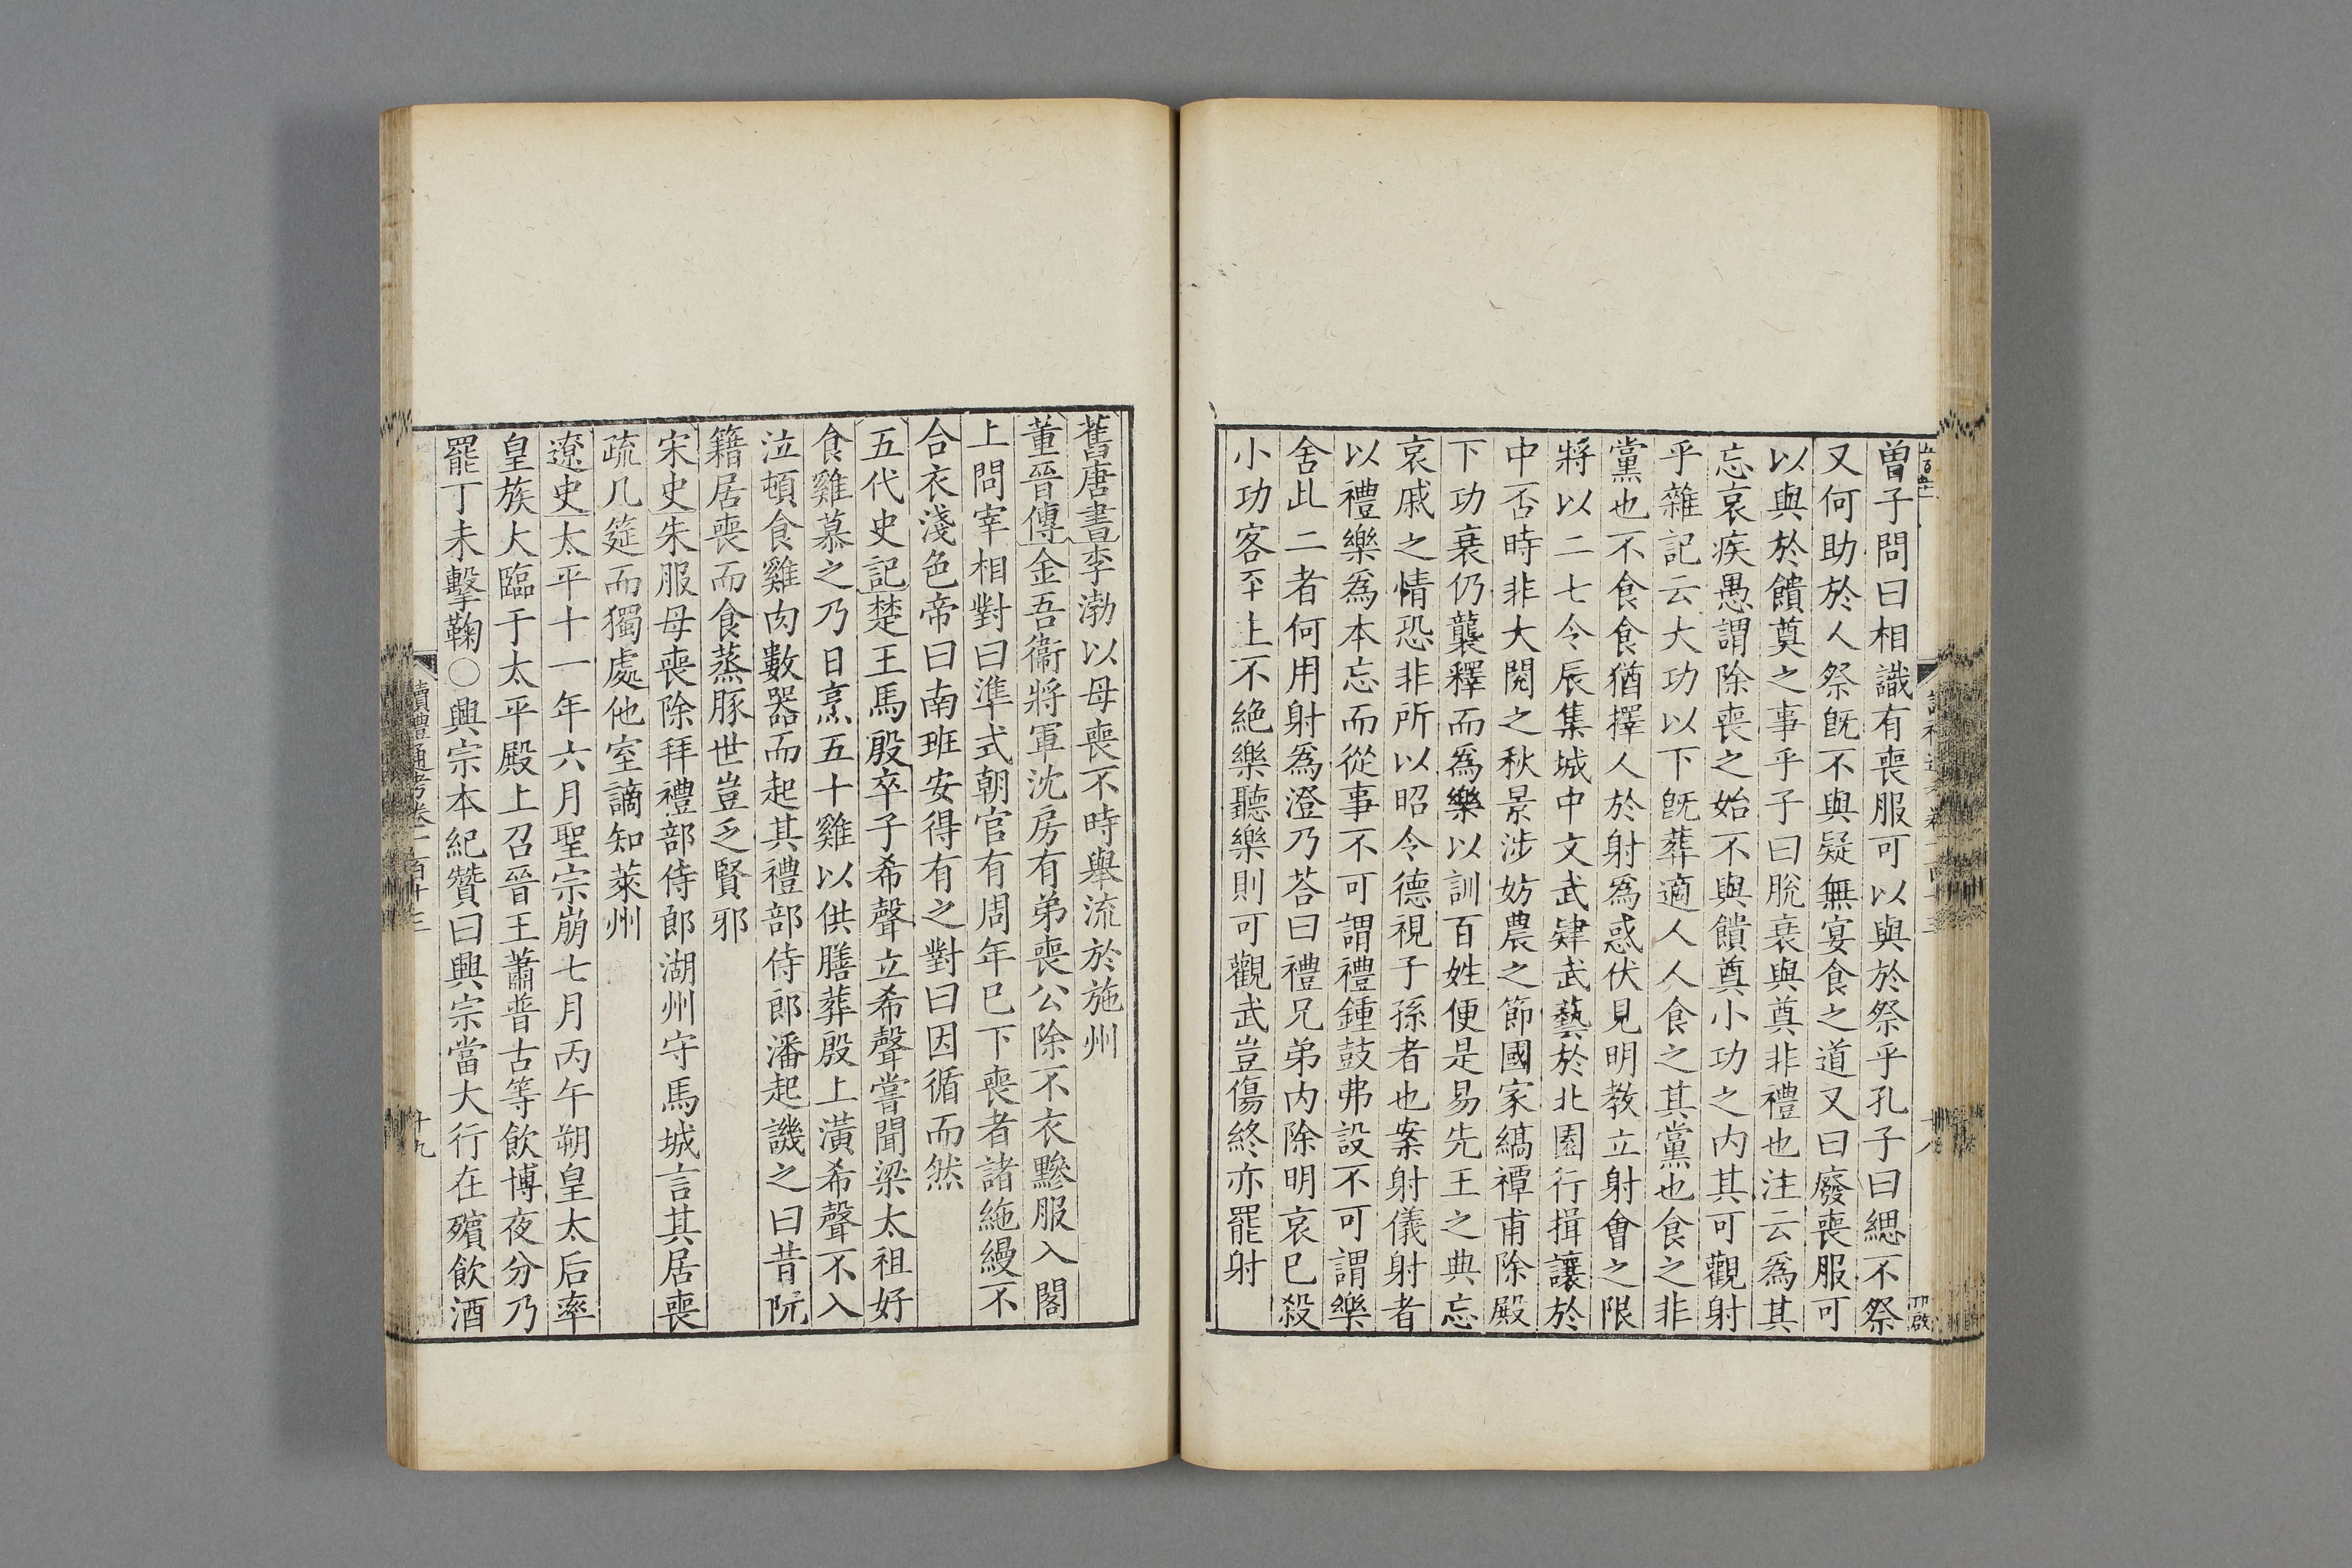 曾子問曰相識有喪服可以與於祭乎孔子曰緦不祭
又何助於人祭旣不與疑無宴食之道又曰廢喪服可
以與於饋奠之事乎子曰脫衰與奠非禮也注云爲其
忘哀疾愚謂除喪之始不與饋奠小功之内其可觀射
乎雜記云大功以下旣葬適人人食之其黨也食之非
黨也不食食猶擇人於射爲惑伏見明教立射會之限
將以二七令辰集城中文武肄武藝於北園行揖讓於
中否時非大閱之秋景涉妨農之節國家縞禫甫除殿
下功衰仍襲釋而爲樂以訓百姓便是易先王之典忘
哀戚之情恐非所以昭令德視子孫者也案射儀射者
以禮樂爲本忘而從事不可謂禮鍾鼓弗設不可謂樂
舍此二者何用射爲澄乃荅曰禮兄弟内除明哀已殺
小功客至上不絶樂聽樂則可觀武豈傷終亦罷射
舊唐書李渤以母喪不時舉流於施州
董晉傳金吾衞將軍沈房有弟喪公除不衣黲服入閤
上問宰相對曰準式朝官有周年已下喪者諸絁縵不
合衣淺色帝曰南班安得有之對曰因循而然
五代史記楚王馬殷卒子希聲立希聲嘗聞梁太祖好
食雞慕之乃日烹五十雞以供膳葬殷上潢希聲不入
泣頓食雞肉數器而起其禮部侍郎潘起譏之曰昔阮
籍居喪而食蒸豚世豈乏賢邪
宋史朱服母喪除拜禮部侍郎湖州守馬城言其居喪
疏几筵而獨處他室謫知萊州
遼史太平十一年六月聖宗崩七月丙午朔皇太后率
皇族大臨于太平殿上召晉王蕭普古等飲博夜分乃
罷丁未擊鞠○興宗本紀贊曰興宗當大行在殯飲酒
讀禮通考卷一百十三
十九